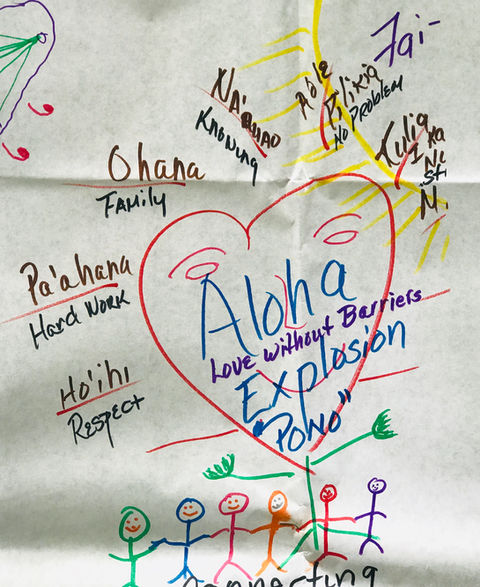 Jai-
Na'auao
Knowing
Aole
Pilikia
No Problem
Kulia
I
Ka
Nu
Ohana
Family
Pa'ahana
Hard Work
Ho'ihi
Respect
Aloha
Love without Barriers
Explosion
"Pono"
Connecting